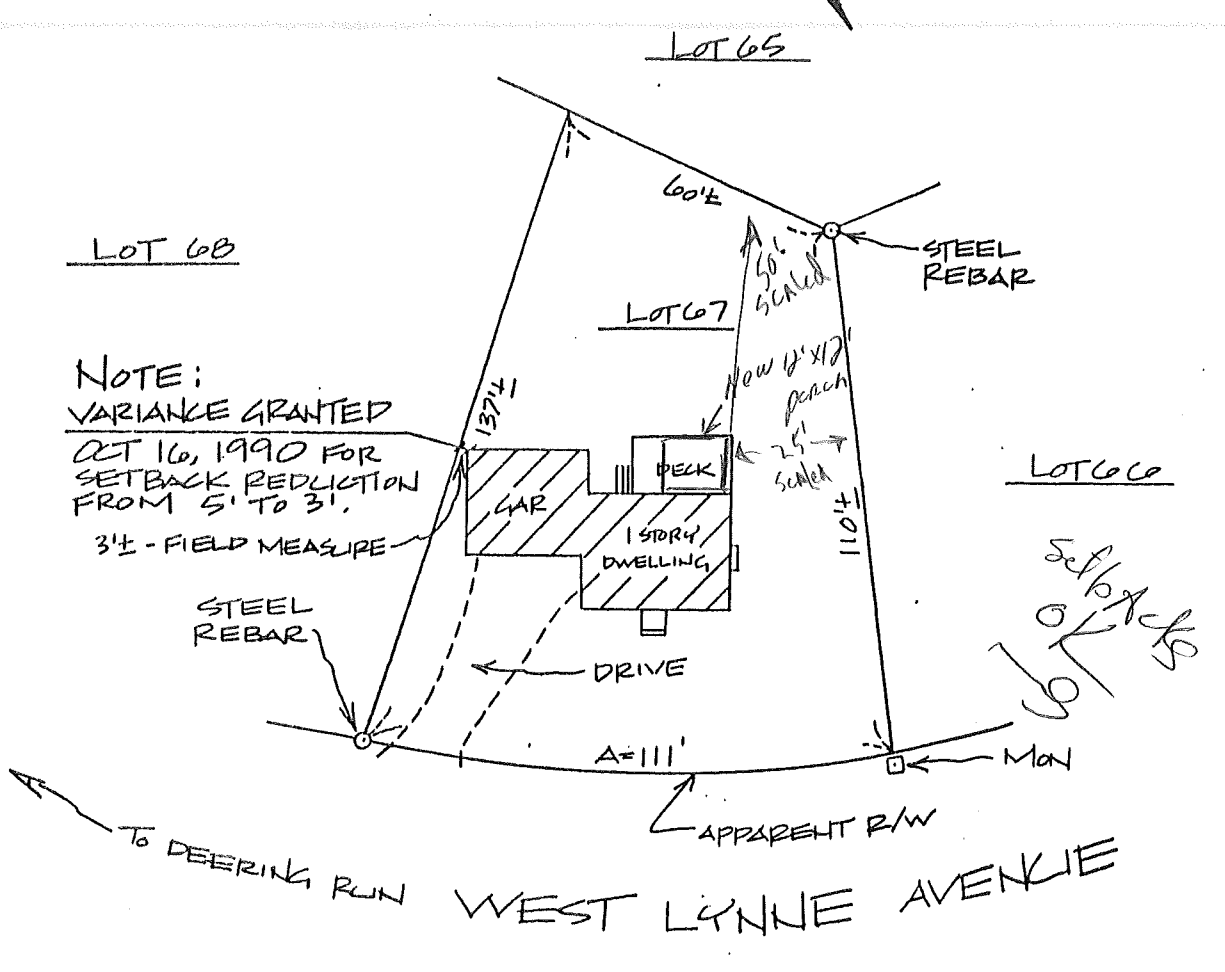 LOT 65
60'±
LOT 68
STEEL
REBAR
50'
scaled
LOT 67
New 12' x 12'
porch
NOTE:
VARIANCE GRANTED
OCT 16, 1990 FOR
SETBACK REDUCTION
FROM 5' TO 3'.
137'±
25'
scaled
DECK
LOT 66
GAR
1 STORY
DWELLING
110'±
3'± - FIELD MEASURE
Setbacks
OK
STEEL
REBAR
DRIVE
A=111'
MON
APPARENT R/W
TO DEERING RUN
WEST LYNNE AVENUE